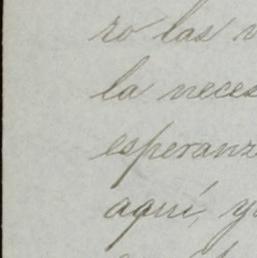 ro las
la neces
esperanz
aquí, y